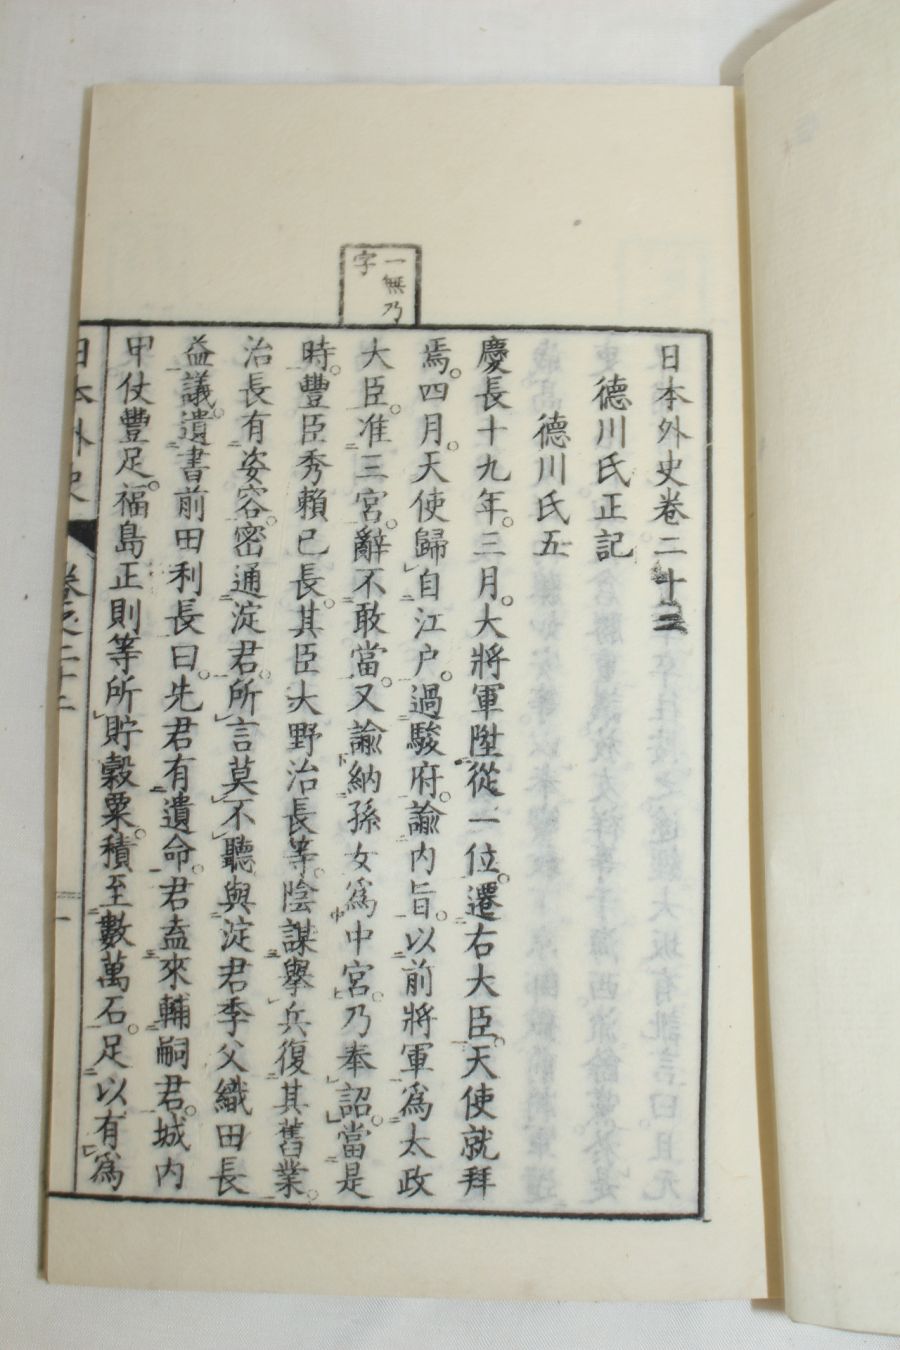 日本外史卷二十二
德川氏正記
德川氏五
慶長十九年。三月。大將軍陞從一位。遷右大臣。天使就拜
焉。四月。天使歸自江户。過駿府。諭內旨。以前將軍爲太政
大臣。准三宮。辭不敢當。又諭納孫女爲中宮。乃奉詔。當是
時。豐臣秀賴已長。其臣大野治長等。陰謀擧兵復其舊業。
治長有姿容。密通淀君。所言莫不聽。與淀君季父織田長
益議。遺書前田利長曰。先君有遺命。君盍來輔嗣君。城內
甲仗豐足。福島正則等所貯穀粟。積至數萬石。足以有爲
一無乃
字
日本外史
卷之二十二
一